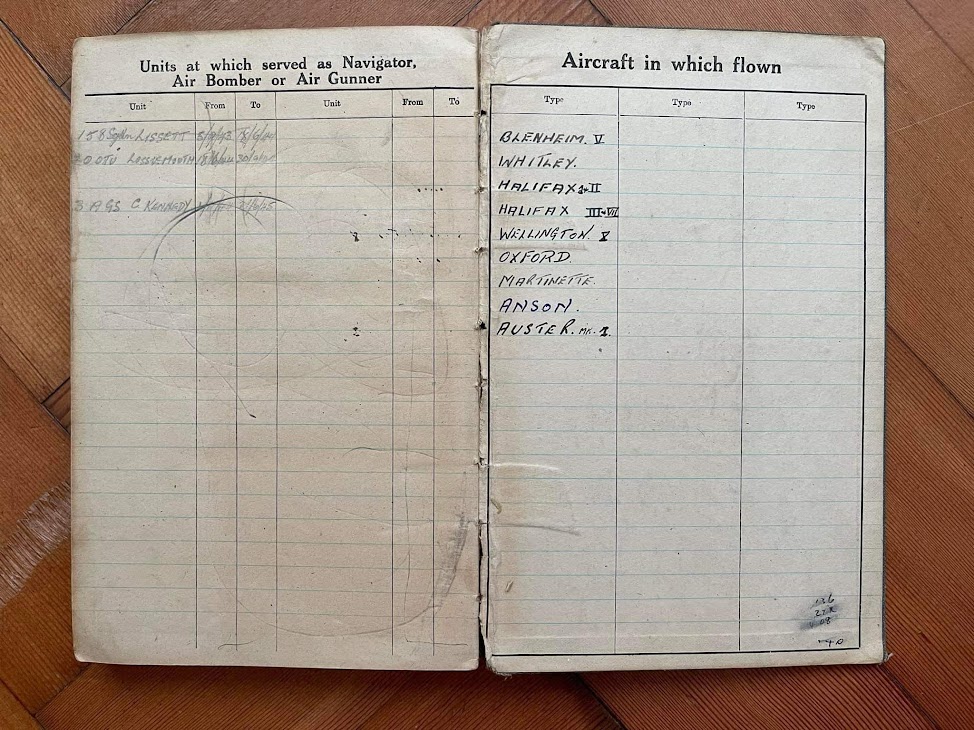 Units at which served as Navigator,
Air Bomber or Air Gunner
Unit From To Unit From To
158 Sqdn LISSETT
20 OTU LOSSIEMOUTH
3 AGS C KENNEDY
Aircraft in which flown
Type Type Type
BLENHEIM. V
WHITLEY.
HALIFAX 1+II
HALIFAX III+VII
WELLINGTON. X
OXFORD.
MARTINETTE.
ANSON.
AUSTER. MK. 1.